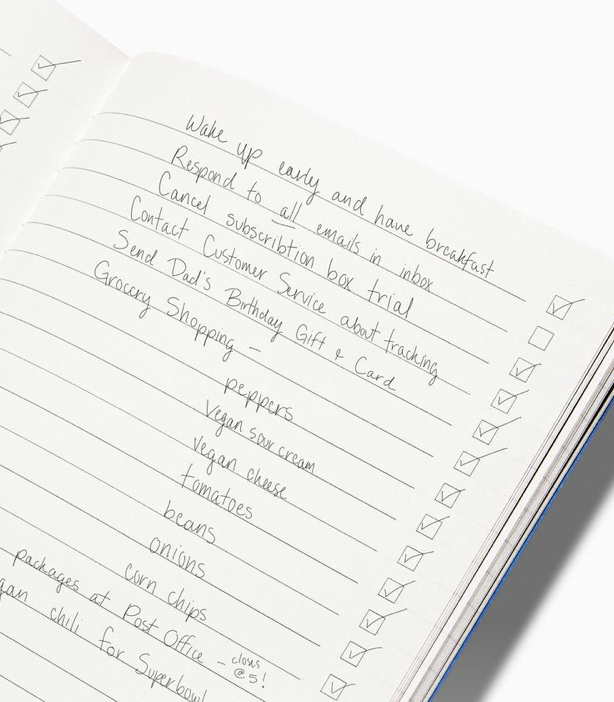 Wake up early and have breakfast
Respond to all emails in inbox
Cancel subscribtion box trial
Contact Customer Service about tracking
Send Dad's Birthday Gift & Card
Grocery Shopping –
peppers
Vegan sour cream
vegan cheese
tomatoes
beans
onions
corn chips
packages at Post Office – closes @5!
chili for Superbowl